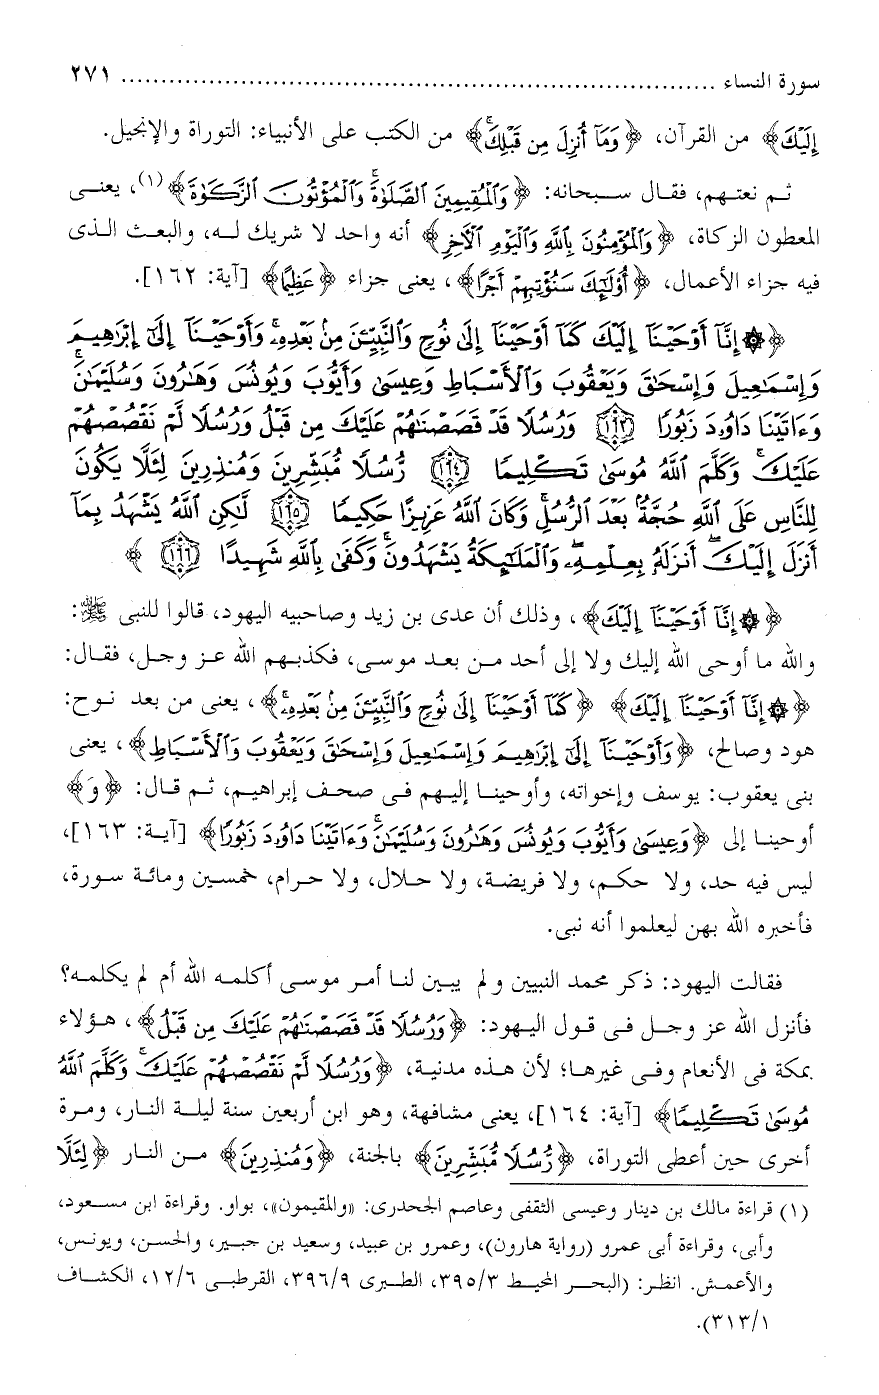 سورة النساء ........................................................................ ٢٧١
إِلَيْكَ﴾ من القرآن، ﴿وَمَآ أُنزِلَ مِن قَبْلِكَۚ﴾ من الكتب على الأنبياء: التوراة والإنجيل.
ثم نعتهم، فقال سبحانه: ﴿وَٱلْمُقِيمِينَ ٱلصَّلَوٰةَۚ وَٱلْمُؤْتُونَ ٱلزَّكَوٰةَ﴾(١)، يعنى
المعطون الزكاة، ﴿وَٱلْمُؤْمِنُونَ بِٱللَّهِ وَٱلْيَوْمِ ٱلْآخِرِ﴾ أنه واحد لا شريك له، والبعث الذى
فيه جزاء الأعمال، ﴿أُوْلَٰٓئِكَ سَنُؤْتِيهِمْ أَجْرًا﴾، يعنى جزاء ﴿عَظِيمًا﴾ [آية: ١٦٢].
﴿۞ إِنَّآ أَوْحَيْنَآ إِلَيْكَ كَمَآ أَوْحَيْنَآ إِلَىٰ نُوحٍ وَٱلنَّبِيِّـۧنَ مِنۢ بَعْدِهِۦۚ وَأَوْحَيْنَآ إِلَىٰٓ إِبْرَٰهِيمَ
وَإِسْمَٰعِيلَ وَإِسْحَٰقَ وَيَعْقُوبَ وَٱلْأَسْبَاطِ وَعِيسَىٰ وَأَيُّوبَ وَيُونُسَ وَهَٰرُونَ وَسُلَيْمَٰنَۚ
وَءَاتَيْنَا دَاوُۥدَ زَبُورًا ﴿١٦٣﴾ وَرُسُلًا قَدْ قَصَصْنَٰهُمْ عَلَيْكَ مِن قَبْلُ وَرُسُلًا لَّمْ نَقْصُصْهُمْ
عَلَيْكَۚ وَكَلَّمَ ٱللَّهُ مُوسَىٰ تَكْلِيمًا ﴿١٦٤﴾ رُّسُلًا مُّبَشِّرِينَ وَمُنذِرِينَ لِئَلَّا يَكُونَ
لِلنَّاسِ عَلَى ٱللَّهِ حُجَّةٌۢ بَعْدَ ٱلرُّسُلِۚ وَكَانَ ٱللَّهُ عَزِيزًا حَكِيمًا ﴿١٦٥﴾ لَّٰكِنِ ٱللَّهُ يَشْهَدُ بِمَآ
أَنزَلَ إِلَيْكَۖ أَنزَلَهُۥ بِعِلْمِهِۦۖ وَٱلْمَلَٰٓئِكَةُ يَشْهَدُونَۚ وَكَفَىٰ بِٱللَّهِ شَهِيدًا ﴿١٦٦﴾ ﴾
﴿۞ إِنَّآ أَوْحَيْنَآ إِلَيْكَ﴾، وذلك أن عدى بن زيد وصاحبيه اليهود، قالوا للنبى ﷺ:
والله ما أوحى الله إليك ولا إلى أحد من بعد موسى، فكذبهم الله عز وجل، فقال:
﴿۞ إِنَّآ أَوْحَيْنَآ إِلَيْكَ﴾ ﴿كَمَآ أَوْحَيْنَآ إِلَىٰ نُوحٍ وَٱلنَّبِيِّـۧنَ مِنۢ بَعْدِهِۦۚ﴾، يعنى من بعد نوح:
هود وصالح، ﴿وَأَوْحَيْنَآ إِلَىٰٓ إِبْرَٰهِيمَ وَإِسْمَٰعِيلَ وَإِسْحَٰقَ وَيَعْقُوبَ وَٱلْأَسْبَاطِ﴾، يعنى
بنى يعقوب: يوسف وإخواته، وأوحينا إليهم فى صحف إبراهيم، ثم قال: ﴿وَ﴾
أوحينا إلى ﴿وَعِيسَىٰ وَأَيُّوبَ وَيُونُسَ وَهَٰرُونَ وَسُلَيْمَٰنَۚ وَءَاتَيْنَا دَاوُۥدَ زَبُورًا﴾ [آية: ١٦٣]،
ليس فيه حد، ولا حكم، ولا فريضة، ولا حلال، ولا حرام، خمسين ومائة سورة،
فأخبره الله بهن ليعلموا أنه نبى.
فقالت اليهود: ذكر محمد النبيين ولم يبين لنا أمر موسى أكلمه الله أم لم يكلمه؟
فأنزل الله عز وجل فى قول اليهود: ﴿وَرُسُلًا قَدْ قَصَصْنَٰهُمْ عَلَيْكَ مِن قَبْلُ﴾، هؤلاء
بمكة فى الأنعام وفى غيرها؛ لأن هذه مدنية، ﴿وَرُسُلًا لَّمْ نَقْصُصْهُمْ عَلَيْكَۚ وَكَلَّمَ ٱللَّهُ
مُوسَىٰ تَكْلِيمًا﴾ [آية: ١٦٤]، يعنى مشافهة، وهو ابن أربعين سنة ليلة النار، ومرة
أخرى حين أعطى التوراة، ﴿رُّسُلًا مُّبَشِّرِينَ﴾ بالجنة، ﴿وَمُنذِرِينَ﴾ من النار ﴿لِئَلَّا
(١) قراءة مالك بن دينار وعيسى الثقفى وعاصم الجحدرى: «والمقيمون»، بواو. وقراءة ابن مسعود،
وأبى، وقراءة أبى عمرو (رواية هارون)، وعمرو بن عبيد، وسعيد بن جبير، والحسن، ويونس،
والأعمش. انظر: (البحر المحيط ٣٩٥/٣، الطبرى ٣٩٦/٩، القرطبى ١٢/٦، الكشاف
٣١٣/١).